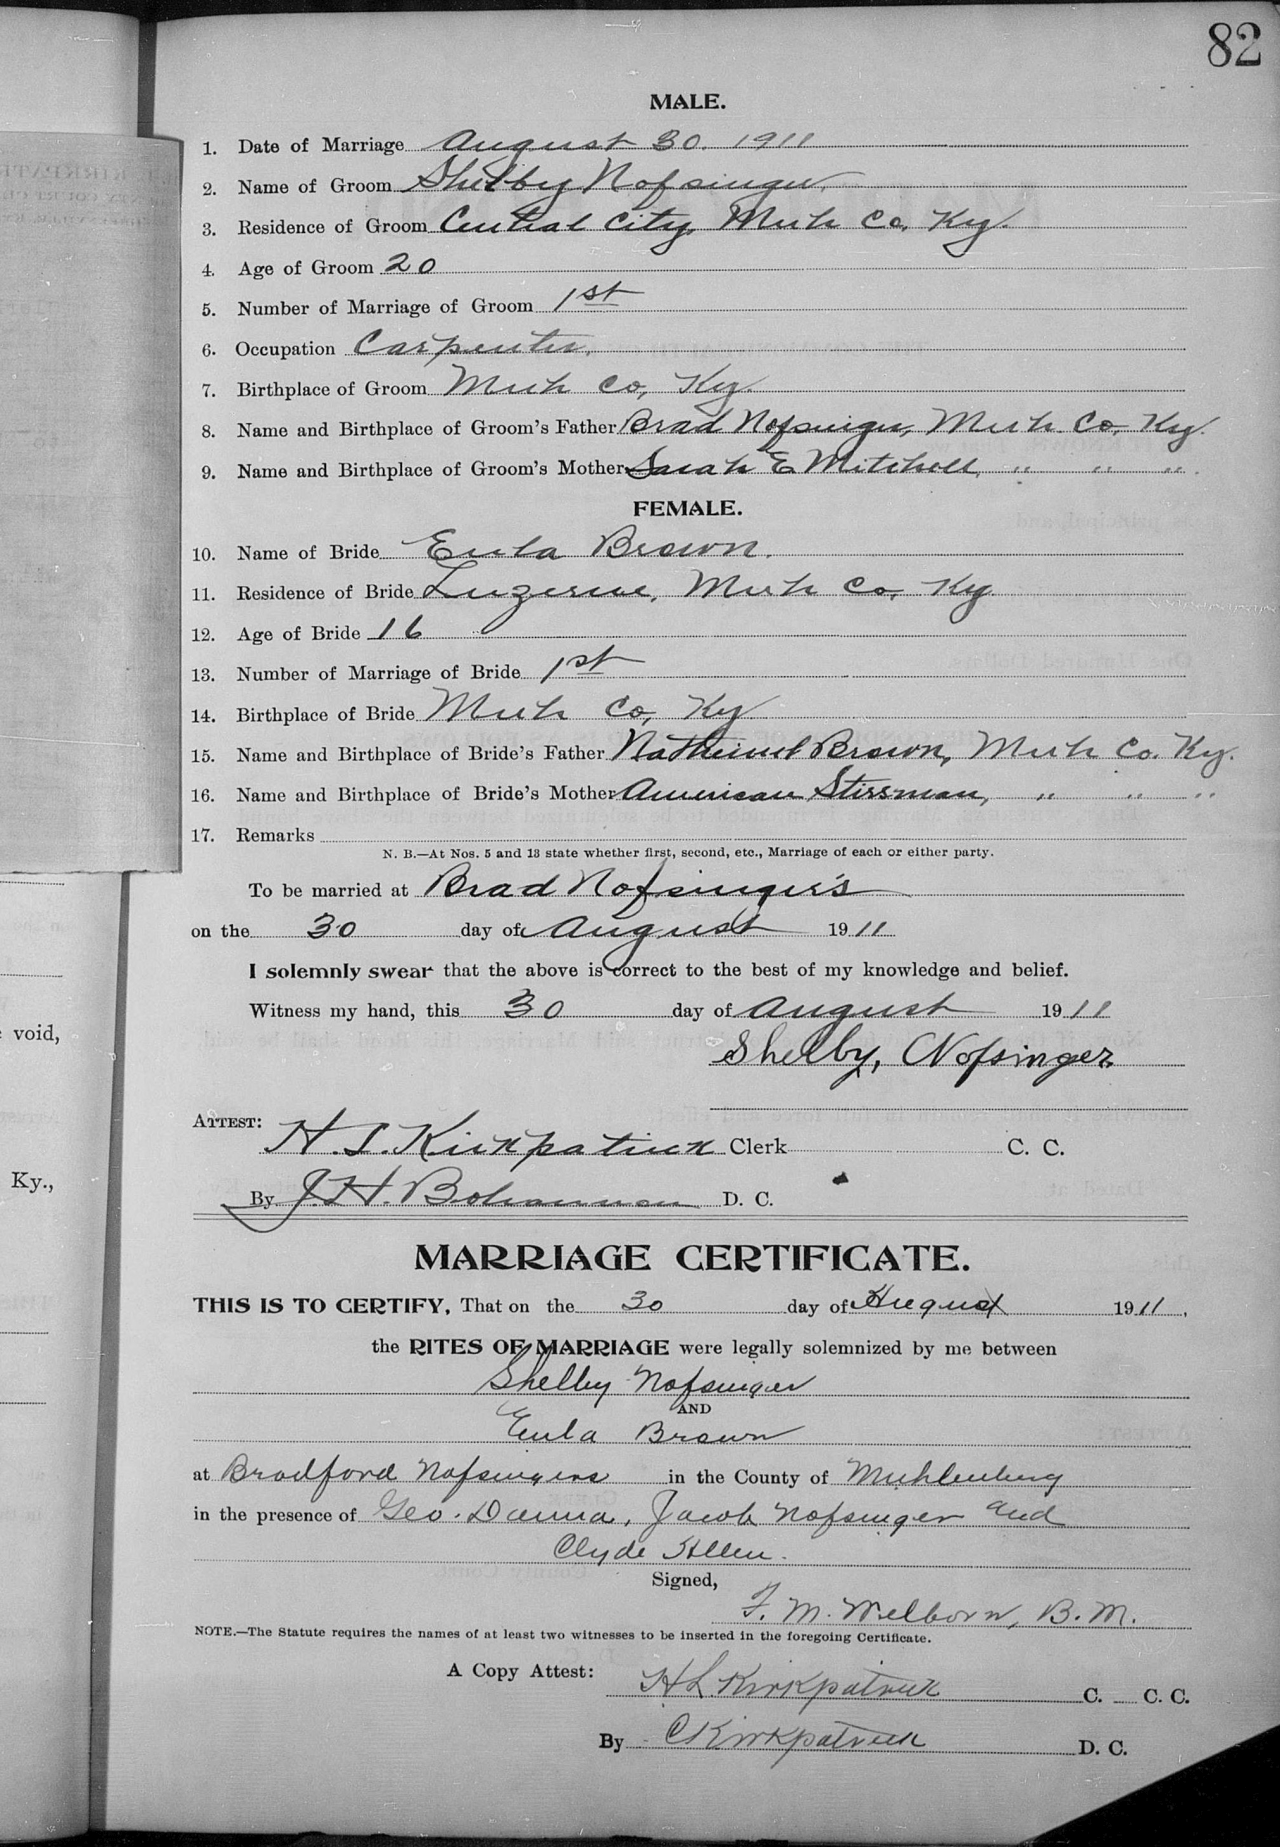 82
MALE.
1. Date of Marriage August 30. 1911
2. Name of Groom Shelby Nofsinger.
3. Residence of Groom Central City, Muh Co. Ky.
4. Age of Groom 20
5. Number of Marriage of Groom 1st
6. Occupation Carpenter.
7. Birthplace of Groom Muh Co, Ky.
8. Name and Birthplace of Groom's Father Brad Nofsinger, Muh Co, Ky.
9. Name and Birthplace of Groom's Mother Sarah E Mitchell, " " "
FEMALE.
10. Name of Bride Eula Brown.
11. Residence of Bride Luzerne, Muh Co, Ky
12. Age of Bride 16
13. Number of Marriage of Bride 1st
14. Birthplace of Bride Muh Co, Ky
15. Name and Birthplace of Bride's Father Brown, Muh Co. Ky.
16. Name and Birthplace of Bride's Mother American Stirsman, " " "
17. Remarks
N. B.—At Nos. 5 and 13 state whether first, second, etc., Marriage of each or either party.
To be married at Brad Nofsinger's
on the 30 day of August 1911
I solemnly swear that the above is correct to the best of my knowledge and belief.
Witness my hand, this 30 day of August 1911
Shelby, Nofsinger
ATTEST: H. L. Kirkpatrick Clerk C. C.
By J. H. Bohannon D. C.
MARRIAGE CERTIFICATE.
THIS IS TO CERTIFY, That on the 30 day of August 1911,
the RITES OF MARRIAGE were legally solemnized by me between
Shelby Nofsinger
AND
Eula Brown
at Bradford Nofsingers in the County of Muhlenberg
in the presence of Geo. Jacob Nofsinger and
Clyde Allen.
Signed,
F. M. Welborn, B. M.
NOTE.—The Statute requires the names of at least two witnesses to be inserted in the foregoing Certificate.
A Copy Attest: H L Kirkpatrick C. C. C.
By C Kirkpatrick D. C.
void,
Ky.,